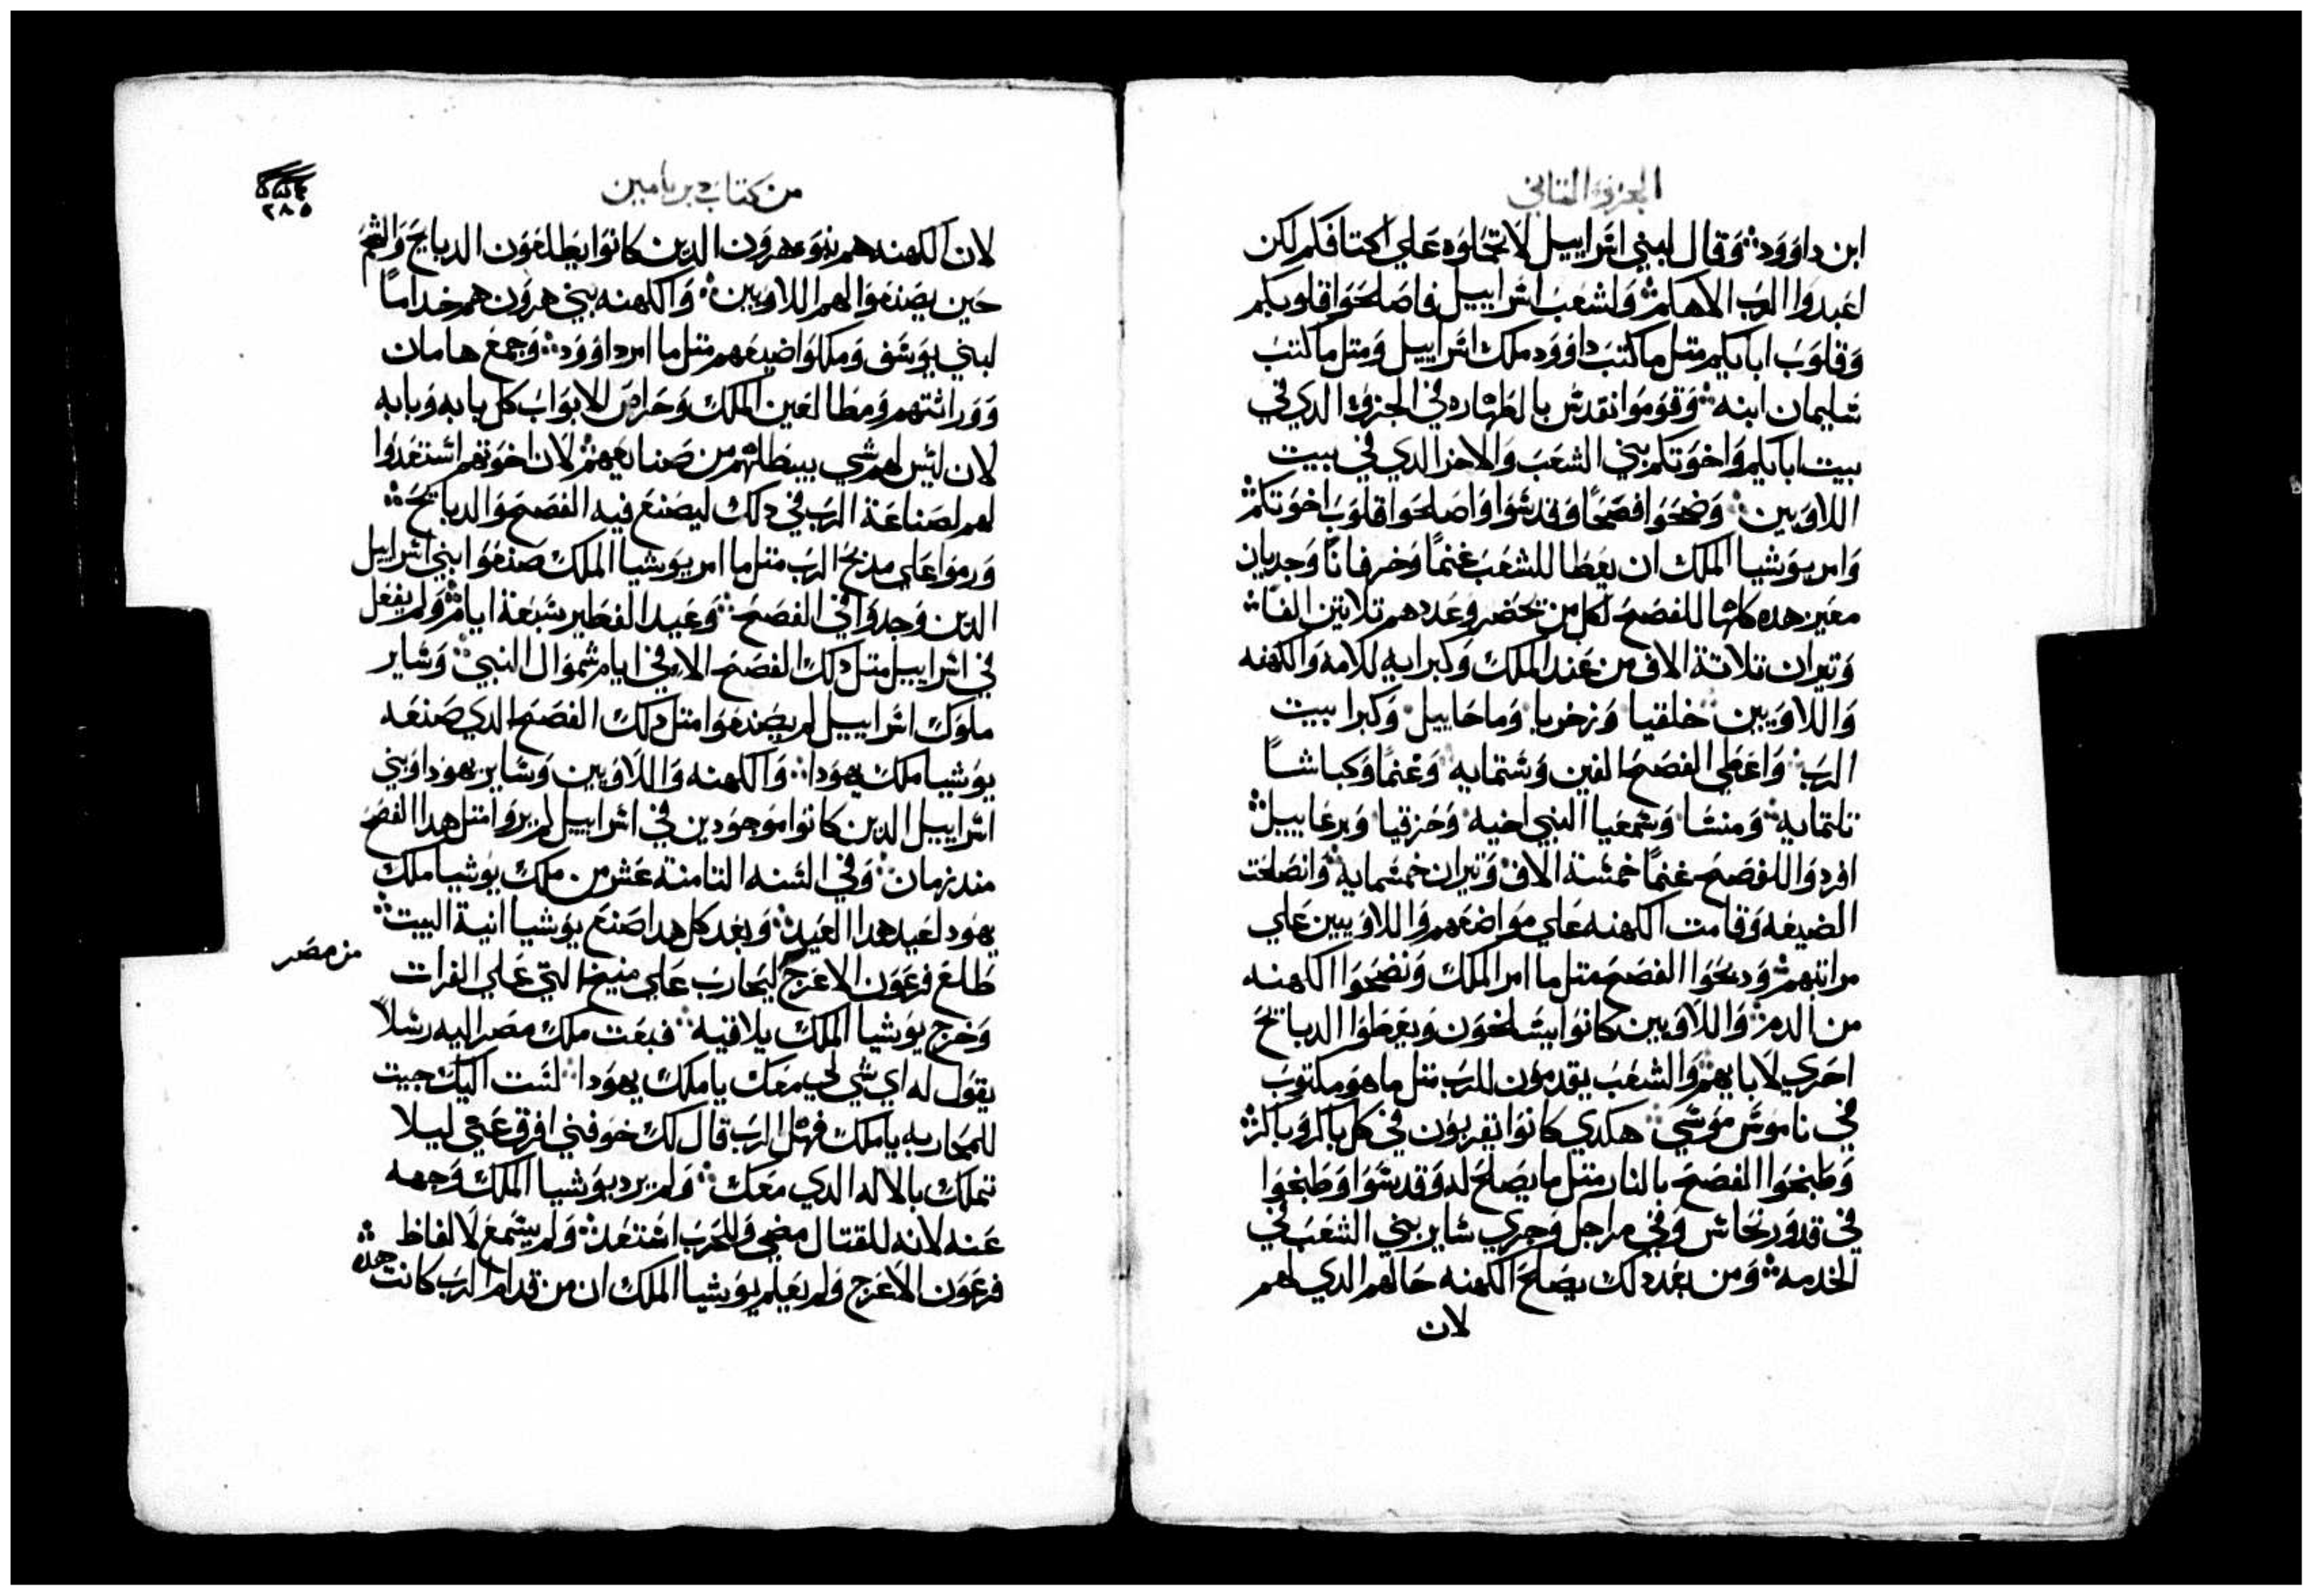 الجزو التاني
ابن داوود وقال لبني اسراييل لا تحملوه علي اكتافكم لكن
اعبدوا الرب الاهكم ولشعب اسراييل فاصلحوا قلوبكم
وقلوب ابايكم متل ما كتب داوود ملك اسراييل ومتل ما كتب
سليمان ابنه وقوموا نقدس بالطهاره في الجزو الدي في
بيت ابايكم واخوتكم بني الشعب والاخر الدي في بيت
اللاويين وضحوا فصحًا وقدسوا واصلحوا قلوب اخوتكم
وامر يوشيا الملك ان يعطا للشعب غنمًا وخرفانًا وجديان
معيز هده كلها للفصح لكل من تحضر وعددهم تلاتين الفًا
وتيران تلاتة الاف من عند الملك وكبرايه للامه والكهنه
واللاويين خلقيا وزخريا وماحاييل وكبرا بيت
الرب واعطي الفصح الفين وستمايه وغنمًا وكباشًا
تلتمايه ومنسا وشمعيا النبي اخيه وحزقيا ويرعاييل
افردوا للفصح غنمًا خمسة الاف وتيران خمسمايه وانصلحت
الضيعه وقامت الكهنه علي مواضعهم واللاويين علي
مراتبهم ودبحوا الفصح متل ما امر الملك ونضحوا الكهنه
من الدم واللاويين كانوا يسلخون ويعطوا الدبايح
احري لابايهم والشعب يقدمون للرب متل ما هو مكتوب
في ناموس موسي هكدي كانوا يقربون في كل باكر وباكر
وطبخوا الفصح بالنار متل ما يصلح له وقدسوا وطبخوا
في قدور نحاس وفي مراجل وجري ساير بني الشعب في
الخدمه ومن بعد دلك يصلح الكهنه حالهم الدي لهم
لان
من كتاب دبريامين
٢٨٥
لان الكهنه هم بنو هرون الدين كانوا يطلعون الدبايح والشحم
حين يصنعوا لهم اللاويين والكهنه بني هرون هم خدامًا
لبني يوسف ومكلوا ضيعهم متل ما امر داوود وجمع هامان
ووراثتهم ومطالعين الملك وحراس للابواب كل بابه وبابه
لان ليس لهم شي يبطلهم من صنايعهم لان اخوتهم استعدوا
لهم لصناعة الرب في دلك ليصنع فيه الفصح والدبايح
ورموا علي مدبح الرب متل ما امر يوشيا الملك صنعوا بني اسراييل
الدين وجدوا في الفصح وعيد الفطير سبعة ايام ولم يفعل
في اسراييل متل دلك الفصح الا في ايام شموال النبي وساير
ملوك اسراييل لم يصنعوا متل دلك الفصح الدي صنعه
يوشيا ملك يهودا والكهنه واللاويين وساير يهودا وبني
اسراييل الدين كانوا موجودين في اسراييل لم يروا متل هدا الفصح
مند زمان وفي السنه التامنة عشر من ملك يوشيا ملك
يهود لعيد هدا العيد وبعد كل هدا صنع يوشيا انية البيت
طلع فرعون الاعرج ليحارب علي منيخ التي علي الفرات
من مصر
وخرج يوشيا الملك يلاقيه فبعت ملك مصر اليه رسلًا
يقول له اي شي لي معك يا ملك يهودا لست اليك جيت
للمحاربه يا ملك فهل الرب قال لك خوفني افرق عني ليلا
تهلك بالاله الدي معك ولم يرد يوشيا الملك وجهه
عنه لانه للقتال مضي وللحرب استعد ولم يسمع لالفاظ
فرعون الاعرج ولم يعلم يوشيا الملك ان من قدام الرب كانت هده